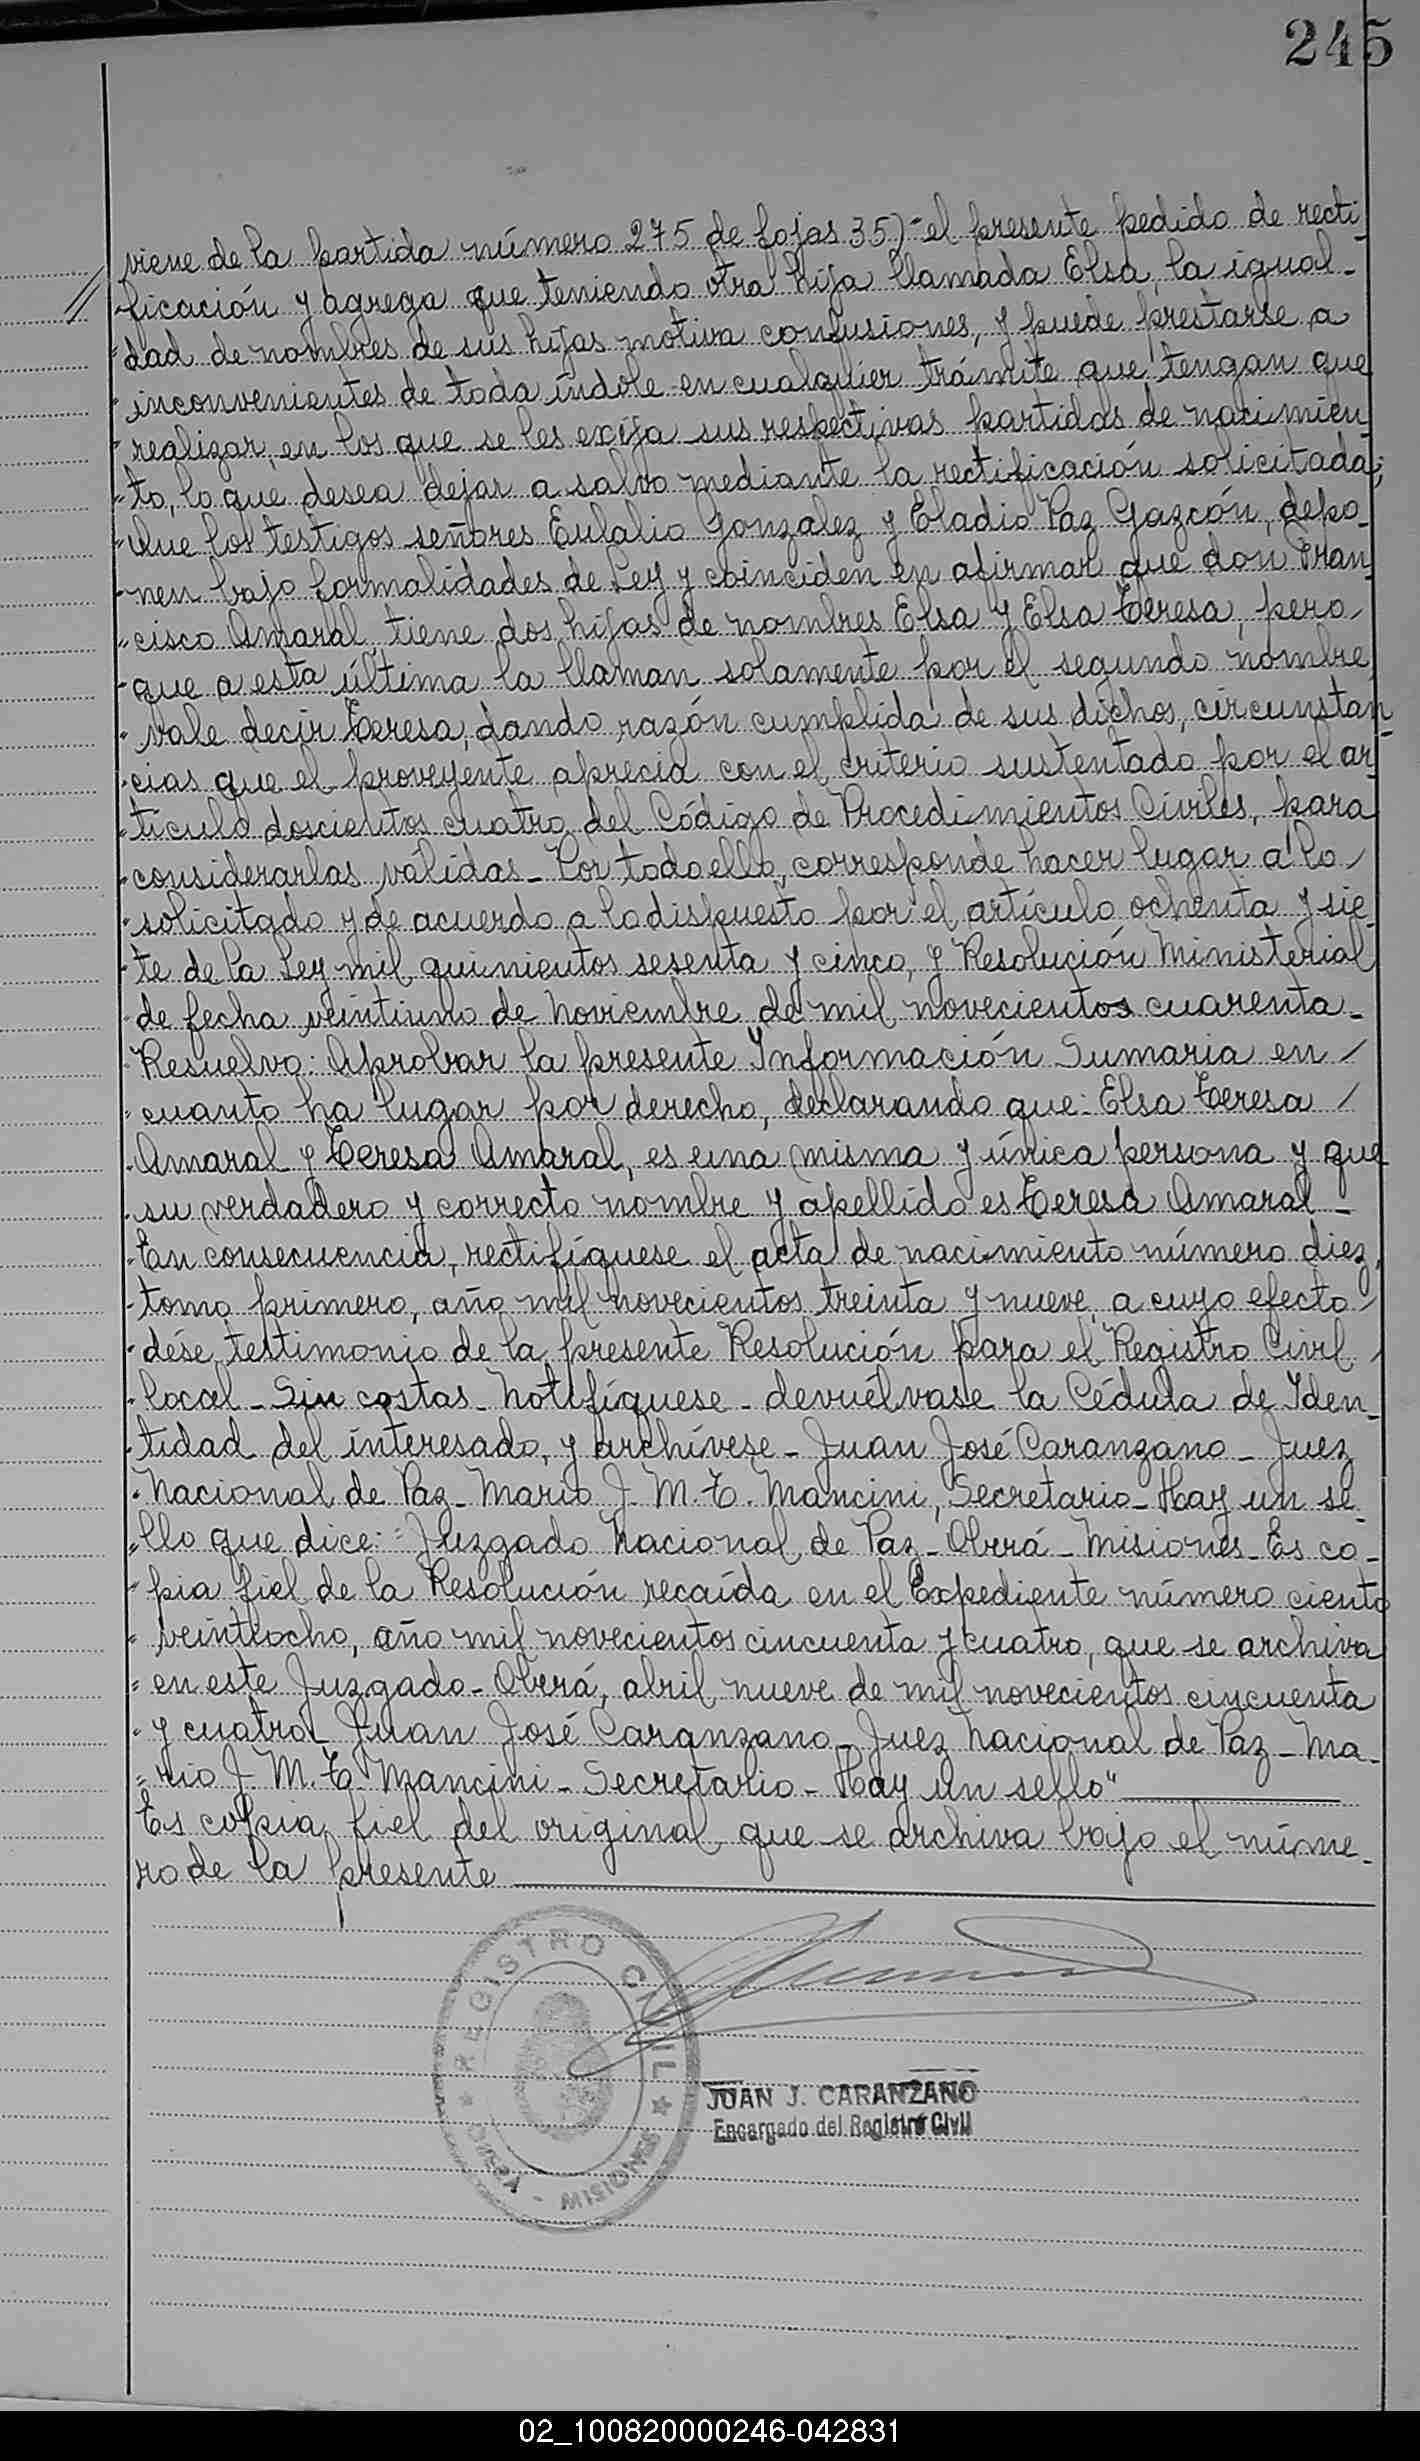 245
viene de la partida número 275 de fojas 35) - el presente pedido de recti
// ficación y agrega que teniendo otra hija llamada Elsa, la igual-
" dad de nombres de sus hijas motiva confusiones, y puede prestarse a
" inconvenientes de toda índole en cualquier trámite que tengan que
" realizar, en los que se les exija sus respectivas partidas de nacimien
" to, lo que desea dejar a salvo mediante la rectificación solicitada;
" Que los testigos señores Eulalio Gonzalez y Eladio Paz Gazcón, depo-
" nen bajo formalidades de Ley y coinciden en afirmar que don Fran
" cisco Amaral, tiene dos hijas de nombres Elsa y Elsa Teresa, pero
" que a esta última la llaman solamente por el segundo nombre
" vale decir Teresa, dando razón cumplida de sus dichos, circunstan
" cias que el proveyente aprecia con el criterio sustentado por el ar-
" tículo doscientos cuatro del Código de Procedimientos Civiles, para
" considerarlas válidas - Por todo ello, corresponde hacer lugar a lo
" solicitado y de acuerdo a lo dispuesto por el artículo ochenta y sie
" te de la Ley mil quinientos sesenta y cinco, y Resolución Ministerial
" de fecha veintiuno de Noviembre de mil novecientos cuarenta -
" Resuelvo: Aprobar la presente Información Sumaria en /
" cuanto ha lugar por derecho, declarando que: Elsa Teresa /
" Amaral y Teresa Amaral, es una misma y única persona y que
" su verdadero y correcto nombre y apellido es Teresa Amaral -
" En consecuencia, rectifíquese el acta de nacimiento número diez,
" tomo primero, año mil novecientos treinta y nueve, a cuyo efecto /
" dése testimonio de la presente Resolución para el Registro Civil /
" local - Sin costas - Notifíquese - devuélvase la Cédula de Iden-
" tidad del interesado, y archívese - Juan José Caranzano - Juez
" Nacional de Paz - Mario J. M. T. Mancini, Secretario - Hay un se-
" llo que dice: "Juzgado Nacional de Paz - Oberá - Misiones - Es co-
" pia fiel de la Resolución recaída en el Expediente número ciento
" veintiocho, año mil novecientos cincuenta y cuatro, que se archiva
" en este Juzgado - Oberá, abril nueve de mil novecientos cincuenta
" y cuatro - Juan José Caranzano - Juez Nacional de Paz - Ma-
" rio J. M. T. Mancini - Secretario - Hay un sello"
Es copia fiel del original que se archiva bajo el núme-
ro de la presente
REGISTRO CIVIL
OBERÁ - MISIONES
JUAN J. CARANZANO
Encargado del Registro Civil
02_100820000246-042831